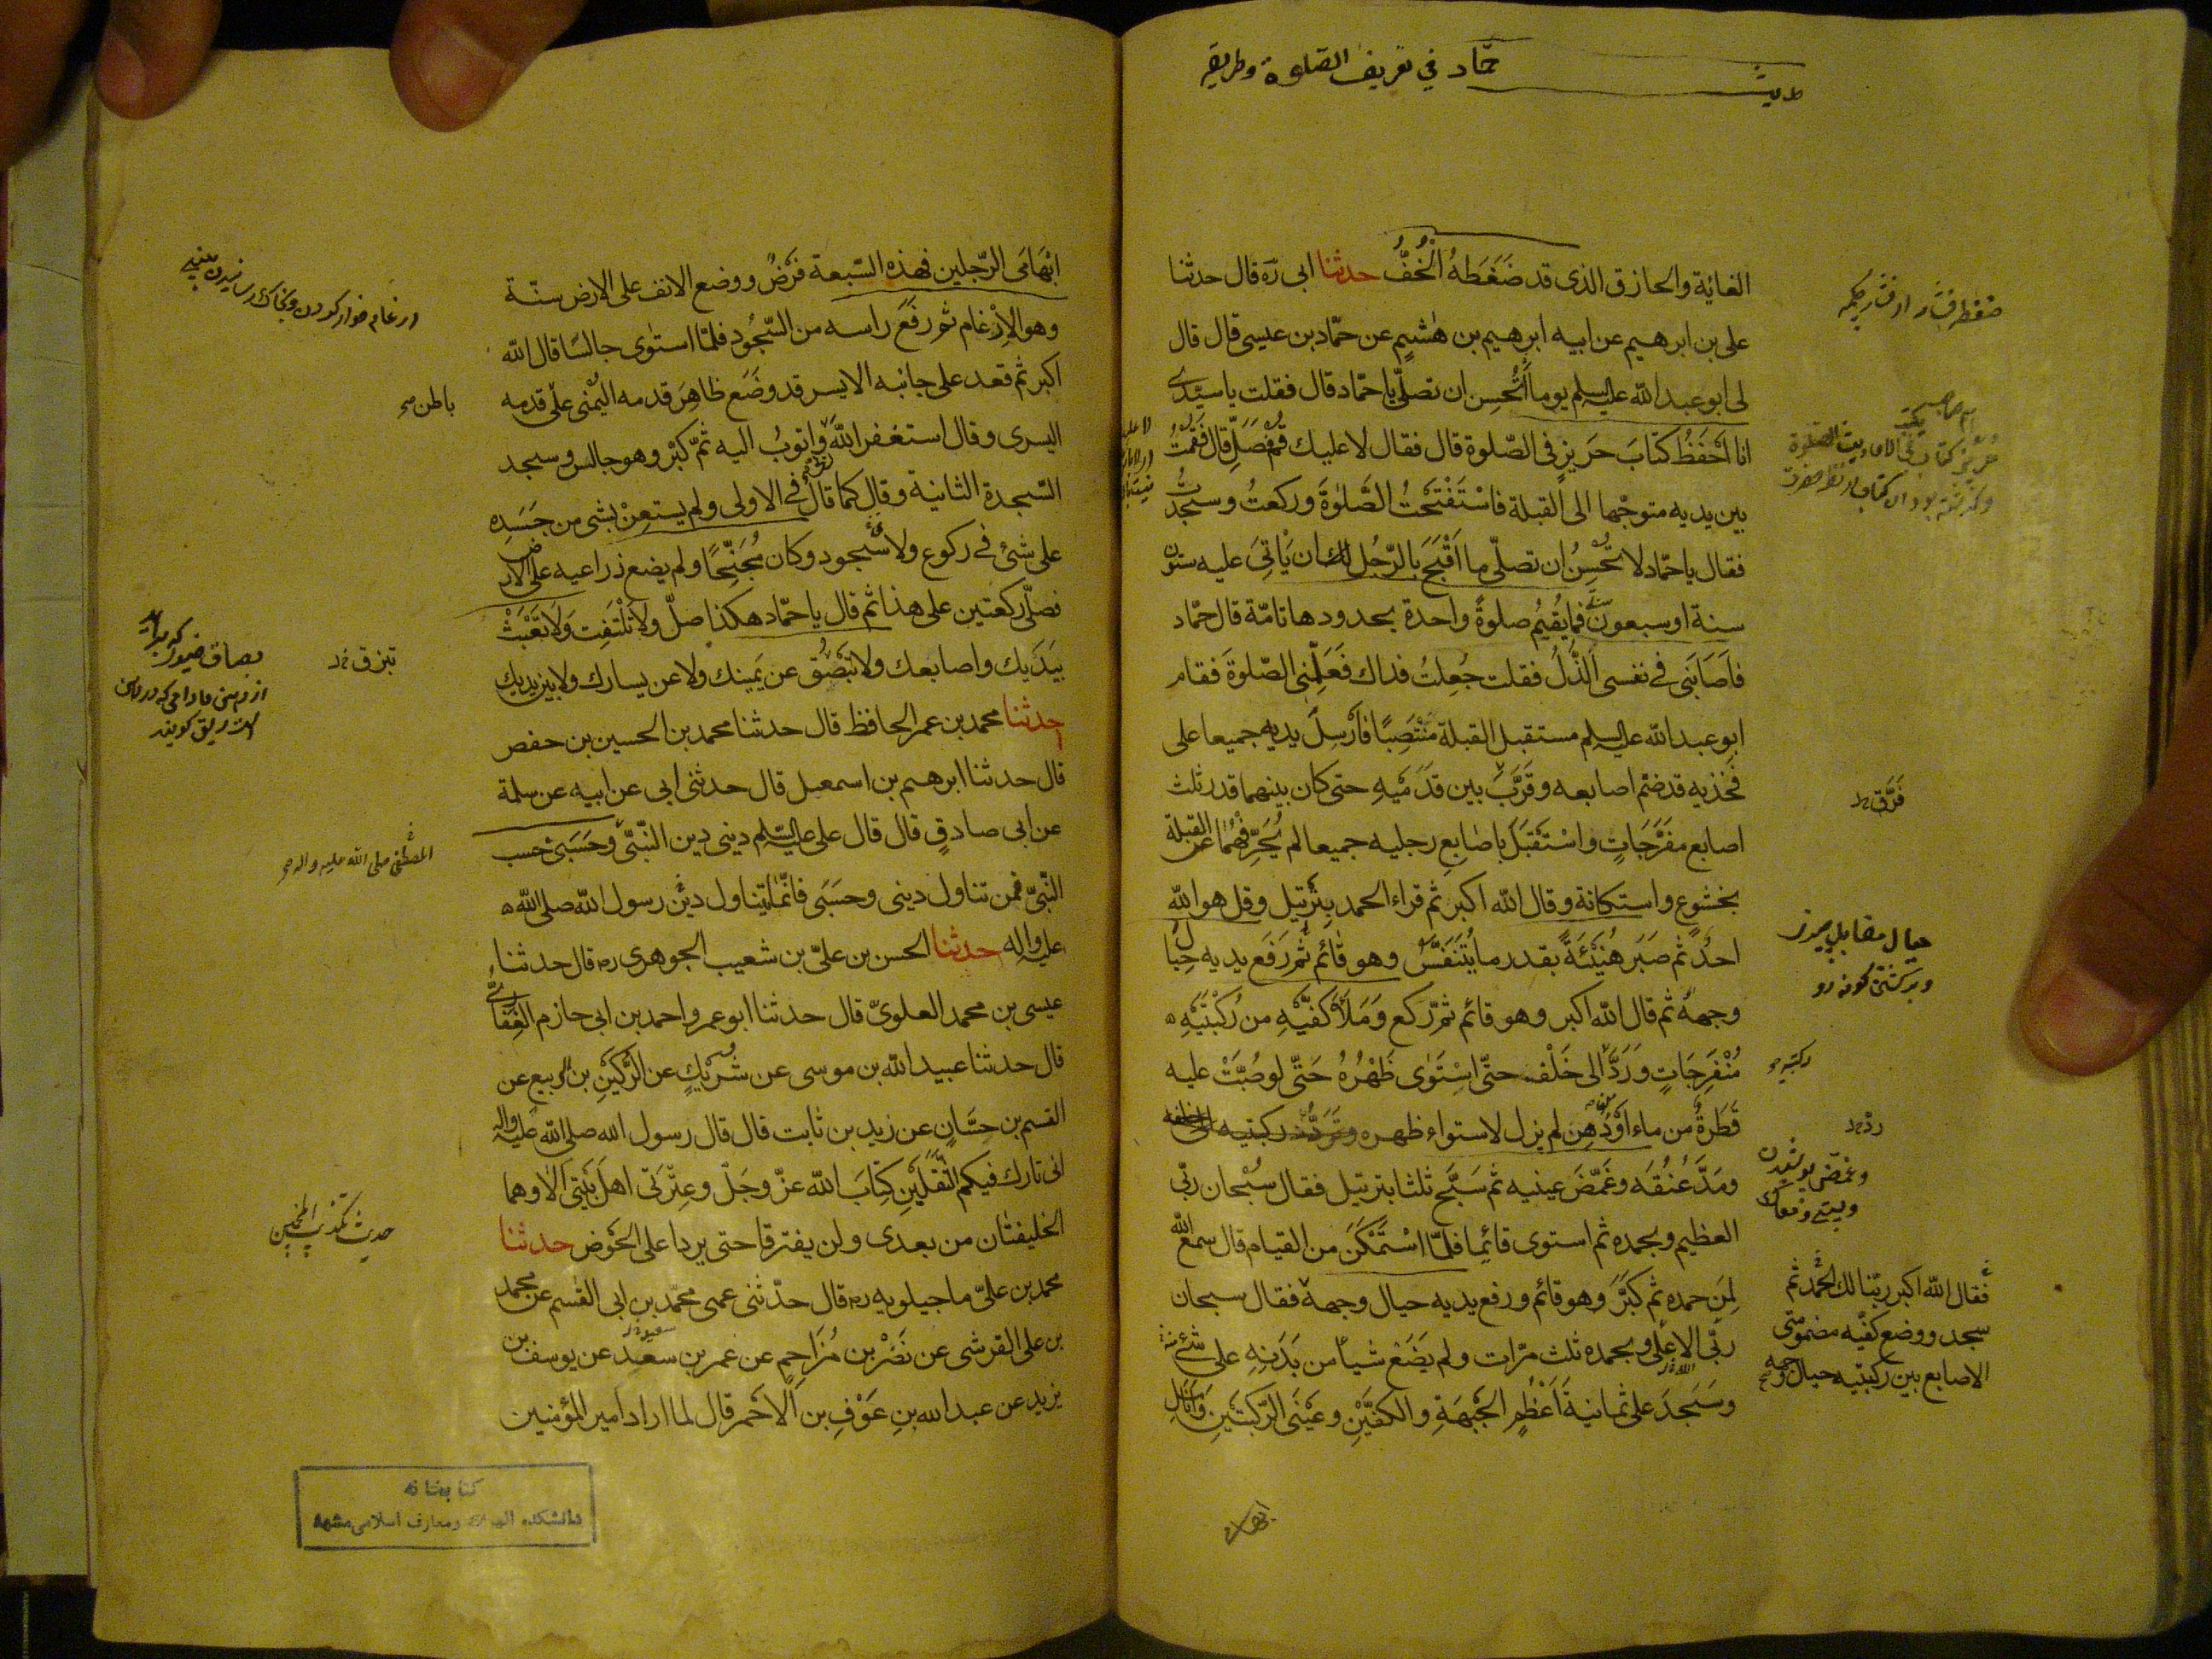 حديث حمّاد في تعريف الصّلوة وطريقه
الغائِة والحازق الذى قد ضَغَطَهُ الْخُفُّ حدثنا ابى ره قال حدثنا
على بن ابرهيم عن ابيه ابرهيم بن هٰشيم عن حمّاد بن عيسى قال قال
لى ابو عبد الله عليه السلم يوما أَتُحسِن ان تصلّى يا حمّاد قال فقلت يا سيّدى
انا اَحْفَظُ كتابَ حَرِيزٍ فى الصّلوة قال فقال لا عليك قُمْ فَصَلِّ قال فَقُمْتُ
بين يديه متوجّها الى القبلة فَاسْتَفْتَحْتُ الصَّلوٰةَ وركعتُ وسجدتُ
فقال يا حمّاد لا تُحْسِنُ ان تصلّى ما اَقْبَحَ بالرّجُل ان يَأتِىَ عليه ستون
سنة او سبعون سنة فما يُقيُم صلوةً واحدة بحدودها تامّة قال حمّاد
فاَصَابَنى فى نفسى الذُّلُ فقلت جُعِلتُ فداك فَعَلِّمْنِى الصّلوةَ فقام
ابو عبد الله عليه السلم مستقبل القبلة مُنْتَصِبًا فَأرْسلَ يديه جميعا على
فَخذيه قد ضمّ اصابعه وقَرَّبَ بين قَدَمَيْهِ حتى كان بينهما قدر ثلث
اصابع مفرَّجَاتٍ واسْتَقبَلَ باصَابِعِ رجليه جميعا لم يُحَرِّفْهُمَا عن القبلة
بخشوعٍ واستكانة وقال الله اكبر ثم قراء الحمد بِتَرْتيل وقل هو الله
احدٌ ثم صَبَرَ هُنَيْئَةً بقدر ما يَتَنَفَّسُ وهو قٰائم ثم رَفَع يديه حِيٰال
وجهه ثم قال الله اكبر وهو قائم ثمّ ركع وَمَلَأَ كَفَّيْهِ من رُكْبَتَيْهِ
مُنْفَرِجَاتٍ وَرَدَّ الى خَلْفه حتّى اسْتَوٰى ظَهْرُهُ حَتّى لو صُبَّتْ عليه
قَطْرَةٌ من ماء اَوْ دُهن لم يزل لاستواء ظهره وتَرَدُّدِ ركبتيه الى خلفه
ومَدَّ عُنُقَه وغَمَّضَ عينيه ثم سَبَّح ثلثا بترتيل فقال سُبْحان ربّى
العظيم وبحمده ثم استوى قائمًا فلمّا اسْتَمْكَنَ من القيام قال سمع الله
لِمَن حمده ثم كبَّرَ وهو قائم ورفع يديه حيال وجهه فقال سبحان
ربّى الاعلى وبحمده ثلث مرّات ولم يَضَعْ شيأ من بَدَنِهِ على شئ منه
وسَجَدَ على ثمانيةَ اَعْظُمٍ الجَبْهَةِ والكفّيْنِ وعَيْنَىِ الرّكبتَيْنِ وَاَنَامِل
فَرَّق خ
حيال مقابل چيزى
ركبتيه
ردّ خ
فقال الله اكبر ربّنا لك الحَمْد ثم
سجد ووضع كفّيه مضمومتى
الاصابع بين ركبتيه حيال وجهه
اِبْهَامَىِ الرّجلين فهذه السّبعة فَرْضٌ ووضع الانف على الارض سنّة
وهو الاِرْغام ثم رَفَعَ راسه من السّجُودِ فلمّا استوٰى جالسًا قال الله
اكبر ثم قعد على جانبه الايسر قد وضَع ظاهِرَ قدمه اليُمْنى على قدمه
اليسرى وقال استغفر الله واتوبُ اليه ثمّ كَبّرَ وهو جالس وسجد
السّجدة الثانية وقال كما قال فى الاولى ولم يستعِنْ بشئ من جَسَدِهِ
على شئ فى ركوع ولا سُجود وكان مُجَنِّحًا ولم يضع ذراعيه على الارض
فصلّى ركعتين على هذا ثم قال يا حمّاد هكذا صلّ ولا تَلْتَفِت وَلَا تَعْبَثْ
بيَدَيك واصابعك ولا تبْصُق عن يَمينك ولا عن يسارك ولا بين يديك
حدثنا محمد بن عمر الحافظ قال حدثنا محمد بن الحسين بن حفص
قال حدثنا ابرهيم بن اسمعيل قال حدثنى ابى عن ابيه عن سلمة
عن ابى صادقٍ قال قال على عليه السّلم دينى دين النّبىّ وحَسَبى حسب
النّبىّ فمن تناول دينى وحسَبى فانّما يتناول دين رسول الله صلى الله
عليه واله حدثنا الحسن بن علىّ بن شعيب الجوهرى ره قال حدثنا
عيسى بن محمد العلوىّ قال حدثنا ابو عمرو احمد بن ابى حازم الغِفارىّ
قال حدثنا عبيد الله بن موسى عن شُرَيْكٍ عن الرّكَيْنِ بن الربيع عن
القسم بن حسَّانٍ عن زيد بن ثابت قال قال رسول الله صلى الله عليه واله
انى تارك فيكم الثّقَلَيْنِ كتابَ الله عزّ وجَلّ وعِتْرتى اهل بَيْتى اَلَا وهما
الخليفتان من بعدى ولن يفترقا حتى يردا على الحَوْض حدثنا
محمد بن علىّ ماجيلويه ره قال حدّثنى عمى محمّد بن ابى القٰسم عن محمد
بن على القرشى عن نَصْر بن مُزَاحِمٍ عن عمر بن سعيد عن يوسف بن
يزيد عن عبد الله بنِ عَوْفِ بن اَلاحْمر قال لما اراد امير المؤمنين
باطن
تبزق خ
المصطفى صلى الله عليه واله
حديث تكذيب المنجمين
كتابخانه
دانشكده الهيات ومعارف اسلامى مشهد